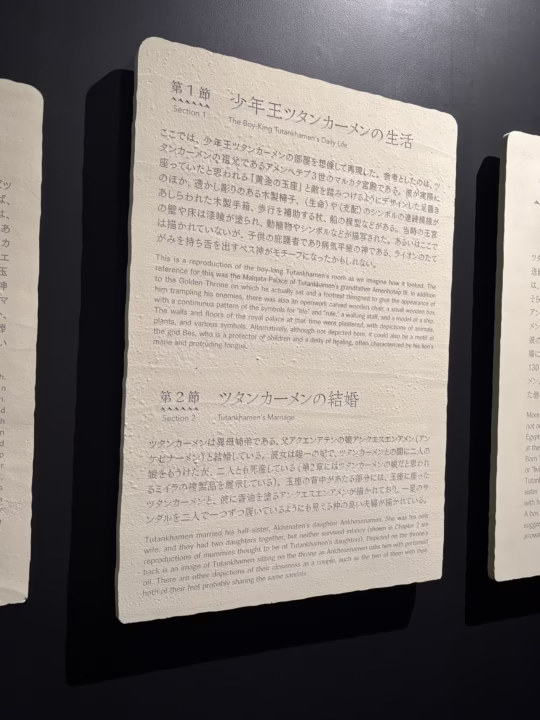 第1節 少年王ツタンカーメンの生活
Section 1 The Boy-King Tutankhamen's Daily Life
ここでは、少年王ツタンカーメンの部屋を想像して再現した。参考としたのは、ツ
タンカーメンの祖父であるアメンヘテプ3世のマルカタ宮殿である。彼が実際に
座っていたと思われる「黄金の玉座」と敵を踏みつけるようにデザインした足置き
のほか、透かし彫りのある木製椅子、〈生命〉や〈支配〉のシンボルの連続模様が
あしらわれた木製手箱、歩行を補助する杖、船の模型などがある。当時の王宮
の壁や床は漆喰が塗られ、動植物やシンボルなどが描写された。あるいはここで
は描かれていないが、子供の庇護者であり病気平癒の神である、ライオンのたて
がみを持ち舌を出すベス神がモチーフになったかもしれない。
This is a reproduction of the boy-king Tutankhamen's room as we imagine how it looked. The
reference for this was the Malqata Palace of Tutankhamen's grandfather Amenhotep III. In addition
to the Golden Throne on which he actually sat and a footrest designed to give the appearance of
him trampling his enemies, there was also an openwork carved wooden chair, a small wooden box
with a continuous pattern of the symbols for "life" and "rule," a walking staff, and a model of a ship.
The walls and floors of the royal palace at that time were plastered, with depictions of animals,
plants, and various symbols. Alternatively, although not depicted here, it could also be a motif of
the god Bes, who is a protector of children and a deity of healing, often characterized by his lion's
mane and protruding tongue.
第2節 ツタンカーメンの結婚
Section 2 Tutankhamen's Marriage
ツタンカーメンは異母姉弟である、父アクエンアテンの娘アンクエスエンアメン(アン
ケセナーメン)と結婚している。彼女は唯一の妃で、ツタンカーメンとの間に二人の
娘をもうけたが、二人とも死産している(第2章にはツタンカーメンの娘だと思われ
るミイラの複製品を展示している)。玉座の背中があたる部分には、玉座に座った
ツタンカーメンと、彼に香油を塗るアンクエスエンアメンが描かれており、一足のサ
ンダルを二人で一つずつ履いているようにも見える仲の良い夫婦が描かれている。
Tutankhamen married his half-sister, Akhenaten's daughter Ankhesenamun. She was his only
wife, and they had two daughters together, but neither survived infancy (shown in Chapter 2 are
reproductions of mummies thought to be of Tutankhamen's daughters). Depicted on the throne's
back is an image of Tutankhamen sitting on the throne as Ankhesenamun rubs him with perfumed
oil. There are other depictions of their closeness as a couple, such as the two of them with their
both of their feet probably sharing the same sandals.